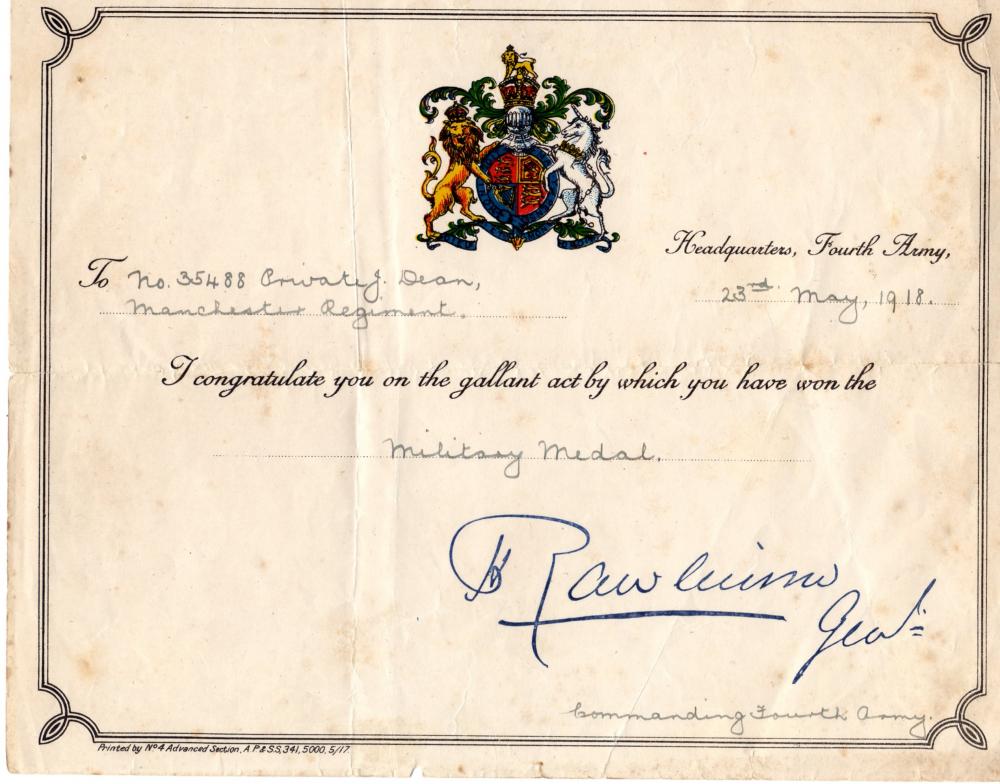 Headquarters, Fourth Army,
To No. 35488 Private J. Dean,
23rd May, 1918.
Manchester Regiment.
I congratulate you on the gallant act by which you have won the
Military Medal.
H Rawlinson
Genl
Commanding Fourth Army.
Printed by No 4 Advanced Section, A.P. & S.S, 341, 5000, 5/17.